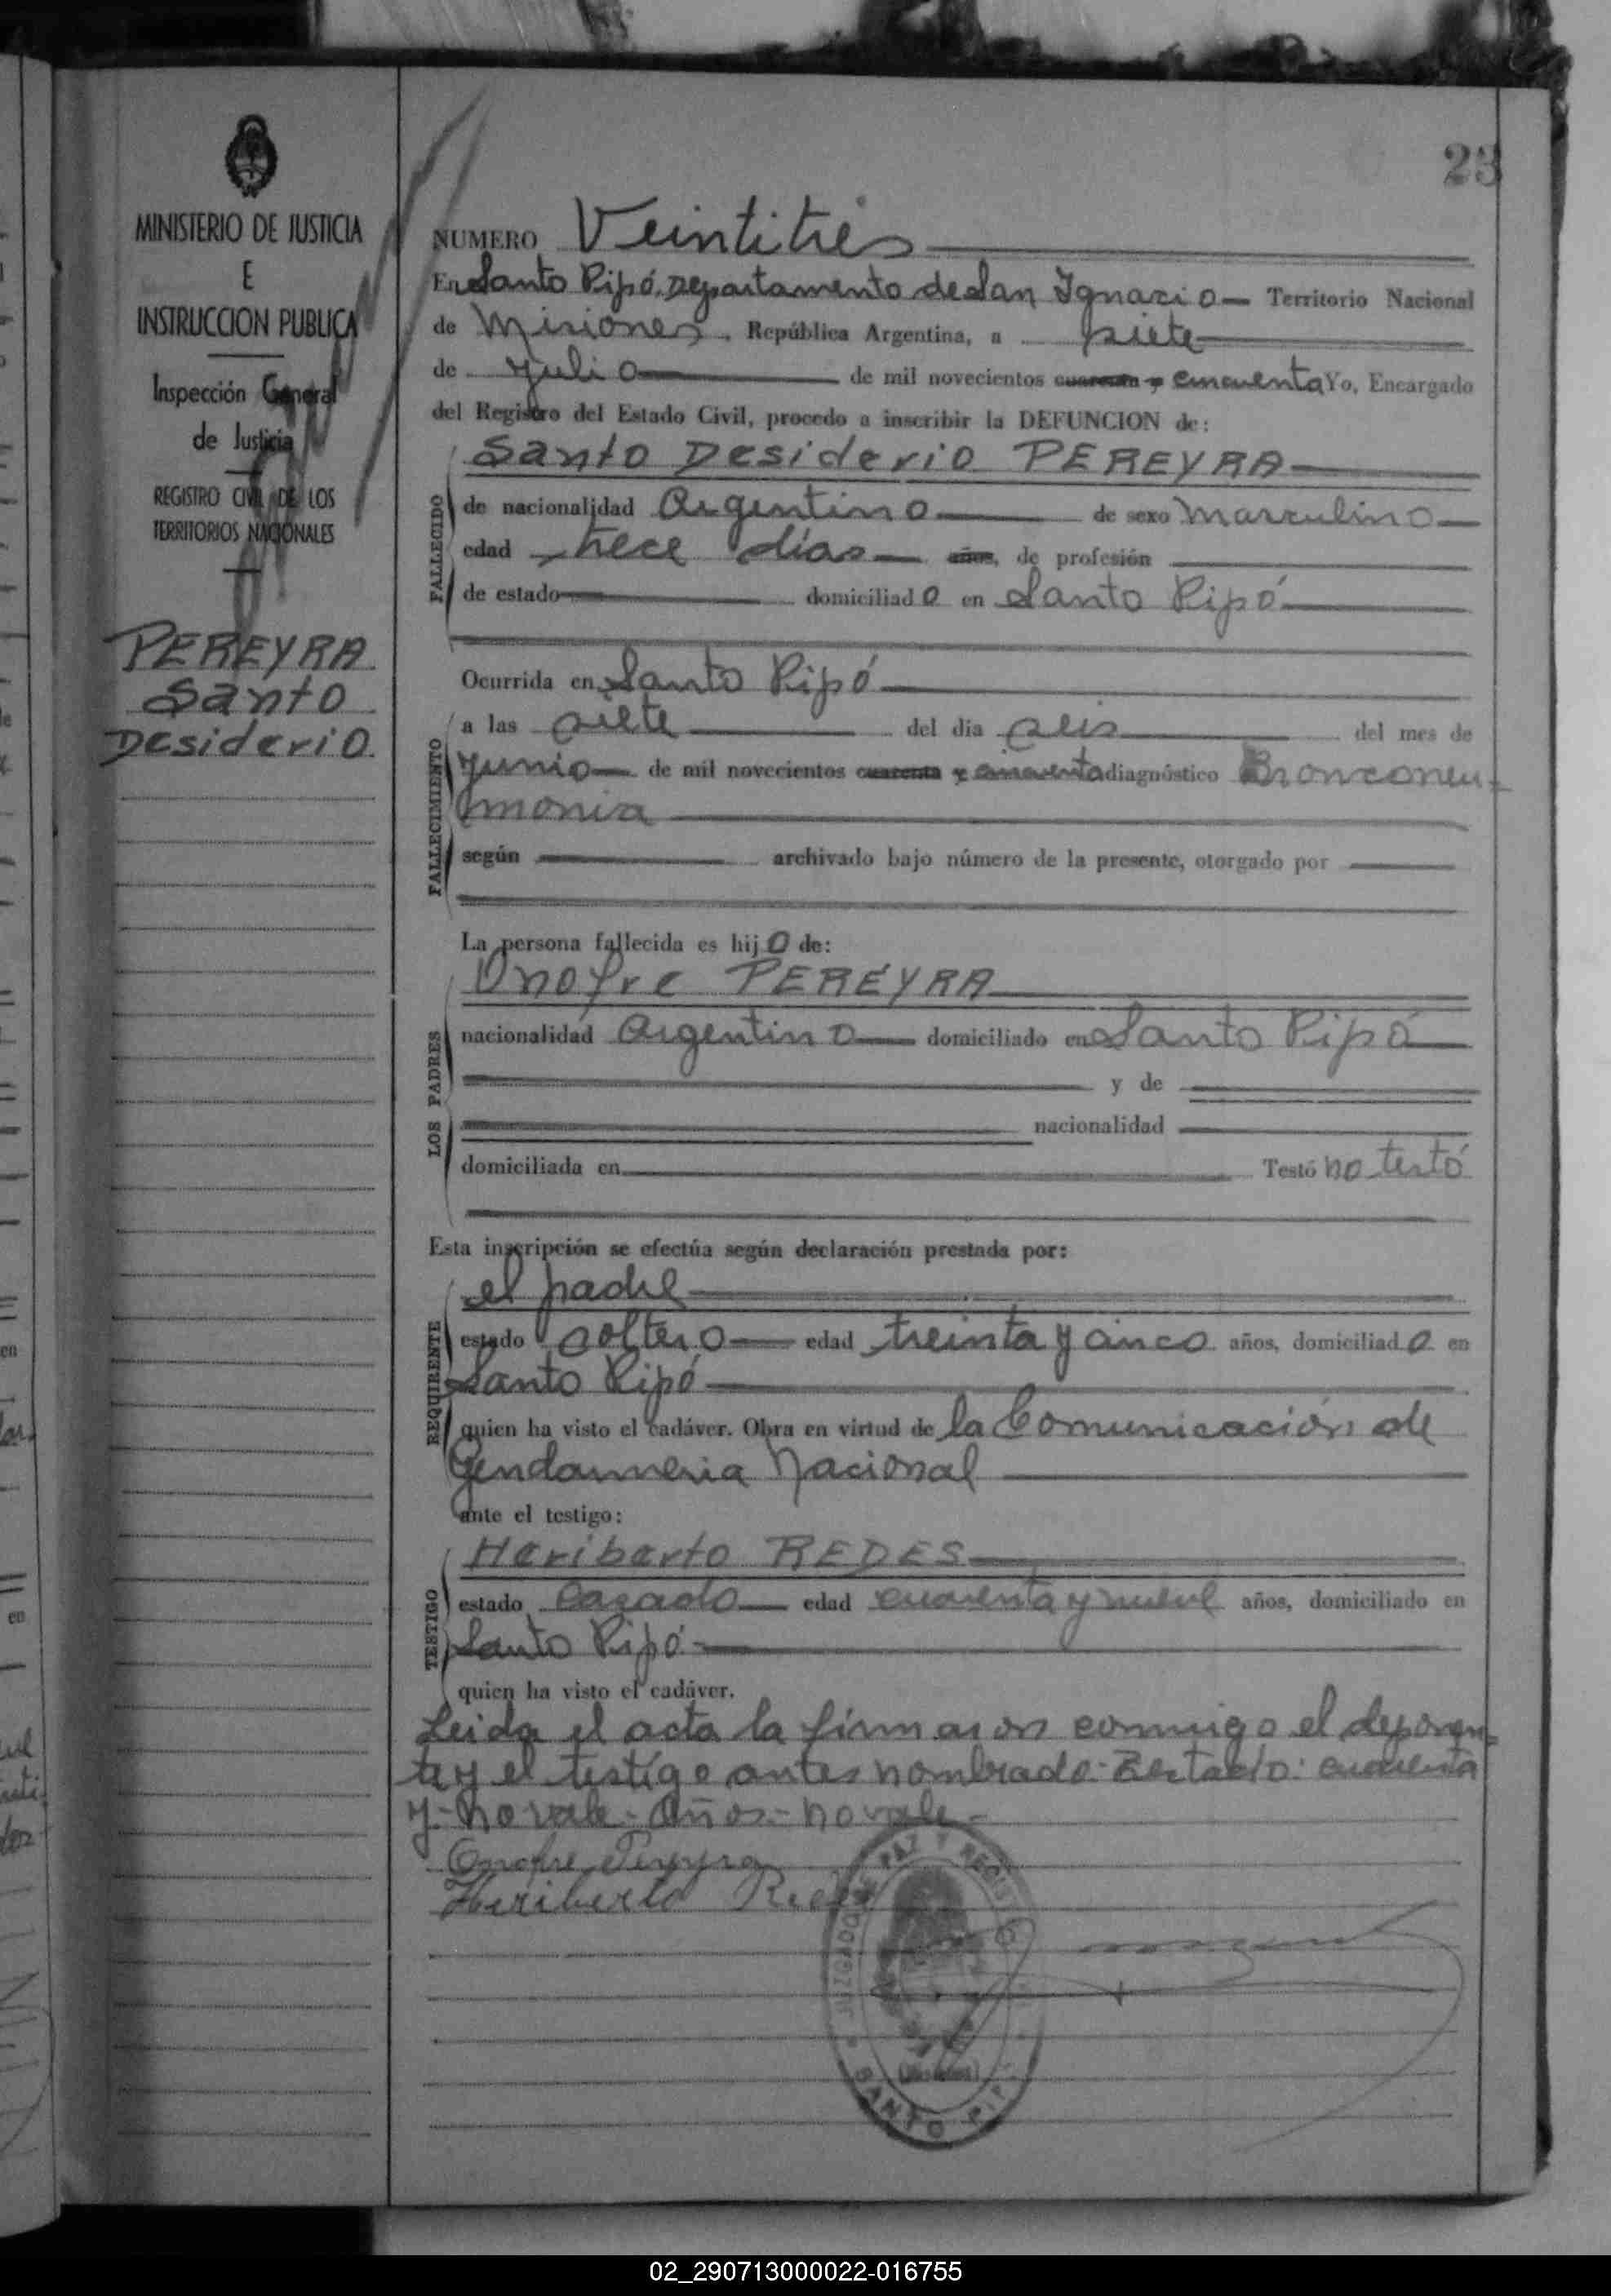 23
MINISTERIO DE JUSTICIA
E
INSTRUCCION PUBLICA
Inspección General
de Justicia
REGISTRO CIVIL DE LOS
TERRITORIOS NACIONALES
PEREYRA
Santo
Desiderio
NUMERO Veintitrés
En Santo Pipó, Departamento de San Ignacio Territorio Nacional
de Misiones, República Argentina, a siete
de julio de mil novecientos cuarenta y cincuenta Yo, Encargado
del Registro del Estado Civil, procedo a inscribir la DEFUNCION de:
Santo Desiderio PEREYRA
FALLECIDO
de nacionalidad Argentino de sexo Masculino
edad trece días años, de profesión
de estado domiciliado en Santo Pipó
Ocurrida en Santo Pipó
FALLECIMIENTO
a las siete del día seis del mes de
junio de mil novecientos cuarenta y cincuenta diagnóstico Bronconeu-
monia
según archivado bajo número de la presente, otorgado por
La persona fallecida es hijo de:
Onofre PEREYRA
LOS PADRES
nacionalidad Argentino domiciliado en Santo Pipó
y de
nacionalidad
domiciliada en Testó no testó
Esta inscripción se efectúa según declaración prestada por:
el padre
REQUIRENTE
estado soltero edad treinta y cinco años, domiciliado en
Santo Pipó
quien ha visto el cadáver. Obra en virtud de la Comunicación de
Gendarmeria Nacional
ante el testigo:
Heriberto REDES
TESTIGO
estado casado edad cuarenta y nueve años, domiciliado en
Santo Pipó
quien ha visto el cadáver.
Leida el acta la firmaron conmigo el deponen-
te y el testigo antes nombrado- Testado: cuarenta
y- no vale- años- no vale-
Onofre Pereyra
Heriberto Redes
JUZGADO DE PAZ Y REGIS
SANTO PIP
02_290713000022-016755